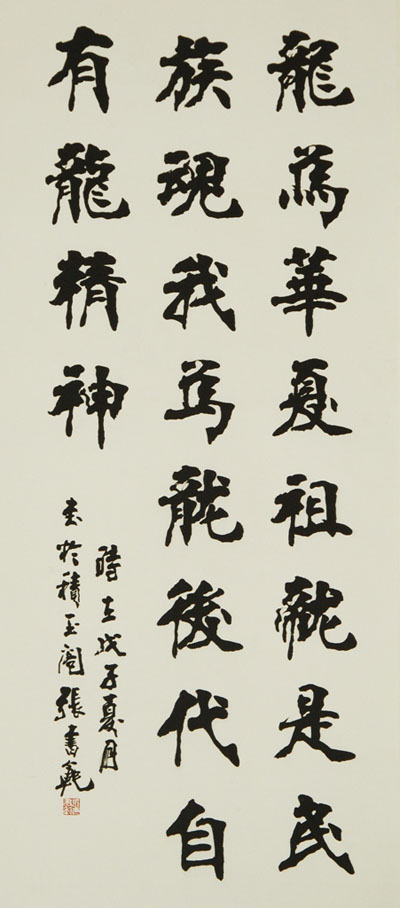 龍為華夏祖龍是民
族魂我為龍後代自
有龍精神
時在戊子夏月
書於積玉閣張書範